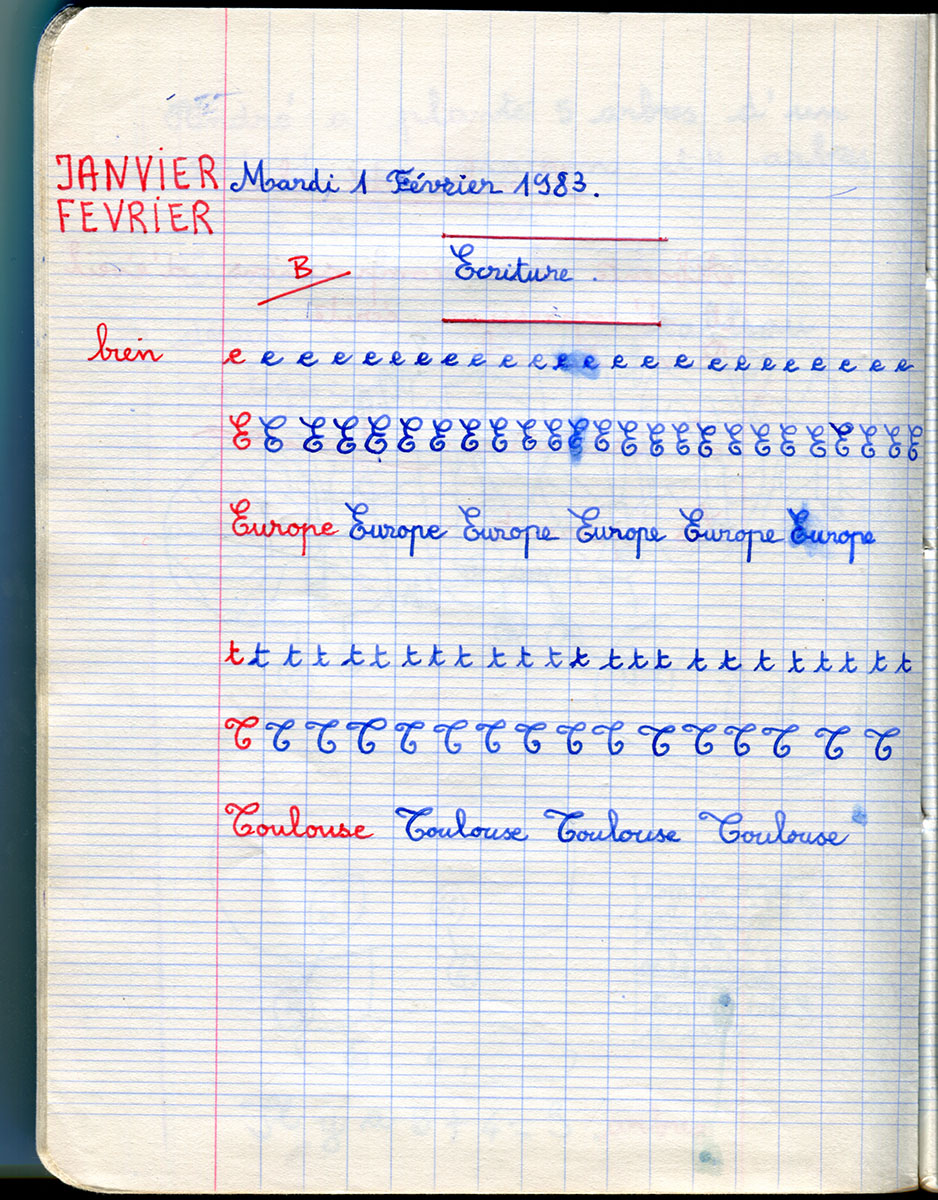 JANVIER Mardi 1 Février 1983.
FEVRIER
B Ecriture.
bien e e e e e e e e e e e e e e e e e e e e e e e e
E E E E E E E E E E E E E E E E E E E E E E E E E
Europe Europe Europe Europe Europe Europe
t t t t t t t t t t t t t t t t t t t t t t t t
T T T T T T T T T T T T T T T T
Toulouse Toulouse Toulouse Toulouse